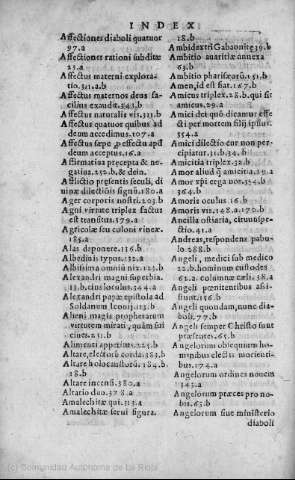 INDEX
Affectiones diaboli quatuor
97.a
Affectiones rationi subditæ
25.a
Affectus materni explora-
tio.511.2.b
Affectus maternos deus fa-
cilius exaudit.343.b
Affectus naturalis vis.313.b
Affectus quatuor quibus ad
deum accedimus.107.a
Affectus sæpe
deum acceptus.16.a
Affirmatiua præcepta & ne-
gatiua.252.b, & dein.
Afflictio præsentis seculi, di
uinæ dilectiõis signũ.180.a
Ager corporis nostri.203.b
Agni virtute triplex factus
est transitus.179.a
Agricolæ seu coloni vineæ.
185.a
Alas deponere.116.b
Albedinis typus.32.a
Alexandri magni superbia.
13.b, eius locutus.344.a
Alexandri papæ epistola ad
Soldanum Iconij.13.b
Alieni magis prophetarum
virtutem mirati, quàm sui
ciues.231.b
Alimenti appetitus.225.b
Altare, electorũ corda.383.b
Altare holocaustorũ.184.b.
28.b
Altare incensi.380.a
Altario deo.378.a
Amalechitæ qui.313.a
Amalechitæ serui figura.
18.b
Ambidextri Gabaonitę.39.b
Ambitio auaritiæ annexa
63.b
Ambitio pharisæorũ.151.b
Amen, id est fiat.167.b
Amicus triplex.28.b, qui sit
amicus.29.a
Amici dei quò dicantur effe-
cti per mortem filij ipsius.
354.a
Amici dilectio cur non per-
cipiatur.31.b.34.b
Amicitia triplex.32.b
Amor aliud q̃ amicitia.29.a
Amor xp̃i erga vos.354.b
364.b
Amoris oculus.16.b
Amoris vis.148.a.170.b
Ancilla ostiaria, circunspe-
ctio.41.a
Andreas, respondens pabu-
lo.288.b
Angeli, medici sub medico
22.b. hominum custodes
62.a. columnæ cæli.38.a
Angeli pœnitentibus assi-
stunt.156.b
Angeli quondam, nunc dia-
boli.77.b
Angeli semper Christo sunt
præsentes.65.b
Angelorum obsequium ho-
minibus electis morienti-
bus.174.a
Angelorum ordines nouem
343.a
Angelorum præces pro no-
bis.65.b
Angelorum siue ministerio
diaboli
(c) Comunidad Autónoma de La Rioja